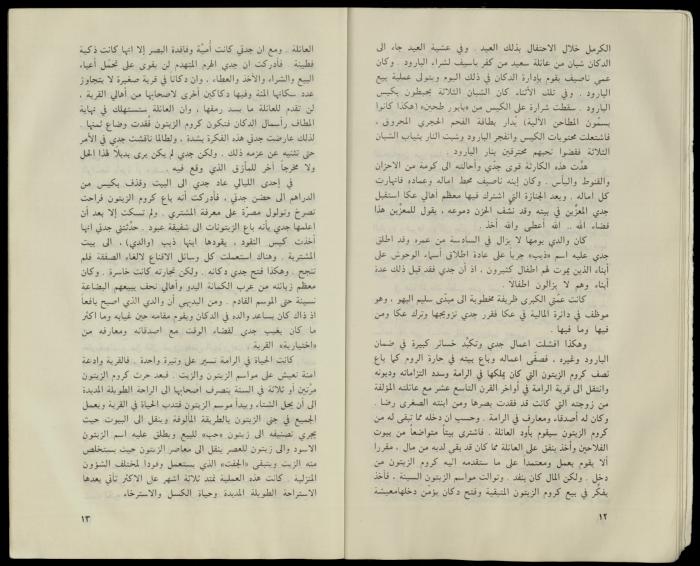 الكرمل خلال الاحتفال بذلك العيد . وفي عشية العيد جاء الى
الدكان شبان من عائلة سعيد من كفر ياسيف لشراء البارود . وكان
عمي ناصيف يقوم بإدارة الدكان في ذلك اليوم ويتولى عملية بيع
البارود . وفي تلك الأثناء كان الشبان الثلاثة يحيطون بكيس
البارود . سقطت شرارة على الكيس من «بابور طحين» (هكذا كانوا
يسمّون المطاحن الآلية) يُدار بطاقة الفحم الحجري المحروق ،
فاشتعلت محتويات الكيس وانفجر البارود وشبت النار بثياب الشبان
الثلاثة فقضوا نحبهم محترقين بنار البارود .
هدَّت هذه الكارثة قوى جدّي وأحالته الى كومة من الاحزان
والقنوط واليأس . وكان إبنه ناصيف محط اماله وعماده فانهارت
كل اماله . وبعد الجنازة التي اشترك فيها معظم أهالي عكا استقبل
جدي المعزّين في بيته وقد نشَّف الحزن دموعه ، يقول للمعزّين هذا
قضاء الله .. الله أعطى والله أخذ .
كان والدي يومها لا يزال في السادسة من عمره وقد اطلق
جدي عليه اسم «ذيب» جرياً على عادة اطلاق أسماء الوحوش على
أبناء الذين يموت لهم اطفال كثيرون ، اذ أن جدي فقد قبل ذلك عدة
أبناء وهم لا يزالون اطفالا .
كانت عمّتي الكبرى ظريفة مخطوبة الى ميدّى سليم اليهو ، وهو
موظف في دائرة المالية في عكا فقرر جدي تزويجها وترك عكا ومن
فيها وما فيها .
وهكذا افشلت اعمال جدي وتكبَّد خسائر كبيرة في ضمان
البارود وغيره ، فصفّى اعماله وباع بيته في حارة الروم كما باع
نصف كروم الزيتون التي كان يملكها في الرامة وسدد التزاماته وديونه
وانتقل الى قرية الرامة في أواخر القرن التاسع عشر مع عائلته المؤلفة
من زوجته التي كانت قد فقدت بصرها ومن ابنته الصغرى رضا .
وكان له أصدقاء ومعارف في الرامة . وحسب ان دخله مما تبقى له من
كروم الزيتون سيقوم بأود العائلة . فاشترى بيتاً متواضعاً من بيوت
الفلاحين وأخذ ينفق على العائلة مما كان قد بقي لديه من مال ، مقررا
ألا يقوم بعمل ومعتمداً على ما ستقدمه اليه كروم الزيتون من
دخل . ولكن المال كان ينفد . وتوالت مواسم الزيتون السيئة ، فأخذ
يفكّر في بيع كروم الزيتون المتبقية وفتح دكان يؤمّن دخلها معيشة
١٢
العائلة . ومع ان جدتي كانت أُميَّة وفاقدة البصر إلا انها كانت ذكية
فطينة . فأدركت ان جدي الهرم المتهدم لن يقوى على تحمّل أعباء
البيع والشراء والأخذ والعطاء ، وان دكانا في قرية صغيرة لا يتجاوز
عدد سكانها المئة وفيها دكاكين أخرى لاصحابها من أهالي القرية ،
لن تقدم للعائلة ما يسد رمقها ، وان العائلة ستستهلك في نهاية
المطاف رأسمال الدكان فتكون كروم الزيتون فُقدت وضاع ثمنها .
لذلك عارضت جدتي هذه الفكرة بشدة ، ولطالما ناقشت جدي في الأمر
حتى تثنيه عن عزمه ذلك . ولكن جدي لم يكن يرى بديلاً لهذا الحل
ولا مخرجاً آخر للمأزق الذي وقع فيه .
في إحدى الليالي عاد جدي الى البيت وقذف بكيس من
الدراهم الى حضن جدتي ، فأدركت أنه باع كروم الزيتون فراحت
تصرخ وتولول مصرّة على معرفة المشتري . ولم تسكت إلا بعد أن
اعلمها جدي بأنه باع الزيتونات الى شفيقة عبود . حدّثتني جدتي انها
أخذت كيس النقود ، يقودها إبنها ذيب (والدي) ، الى بيت
المشترية . وهناك استعملت كل وسائل الاقناع لالغاء الصفقة فلم
تنجح . وهكذا فتح جدي دكانه . ولكن تجارته كانت خاسرة . وكان
معظم زبائنه من عرب الكمانة البدو وأهالي نحف يبيعهم البضاعة
نسيئة حتى الموسم القادم . ومن البديهي أن والدي الذي اصبح يافعاً
اذ ذاك كان يساعد والده في الدكان ويقوم مقامه حين غيابه وما اكثر
ما كان يغيب جدي لقضاء الوقت مع اصدقائه ومعارفه من
«اختيارية» القرية .
كانت الحياة في الرامة تسير على وتيرة واحدة . فالقرية وادعة
امنة تعيش على مواسم الزيتون والزيت . فبعد حرث كروم الزيتون
مرّتين أو ثلاثة في السنة ينصرف اصحابها الى الراحة الطويلة المديدة
الى أن يحل الشتاء ويبدأ موسم الزيتون فتدب الحياة في القرية ويعمل
الجميع في جني الزيتون بالطريقة المألوفة وينقل الى البيوت حيث
يجري تصنيفه الى زيتون «حب» للبيع ويطلق عليه اسم الزيتون
الاسود والى زيتون للعصر ينقل الى معاصر الزيتون حيث يستخلص
منه الزيت ويتبقى «الجفت» الذي يستعمل وقودا لمختلف الشؤون
المنزلية . كانت هذه العملية تمتد ثلاثة اشهر على الاكثر تأتي بعدها
الاستراحة الطويلة المديدة وحياة الكسل والاسترخاء .
١٣